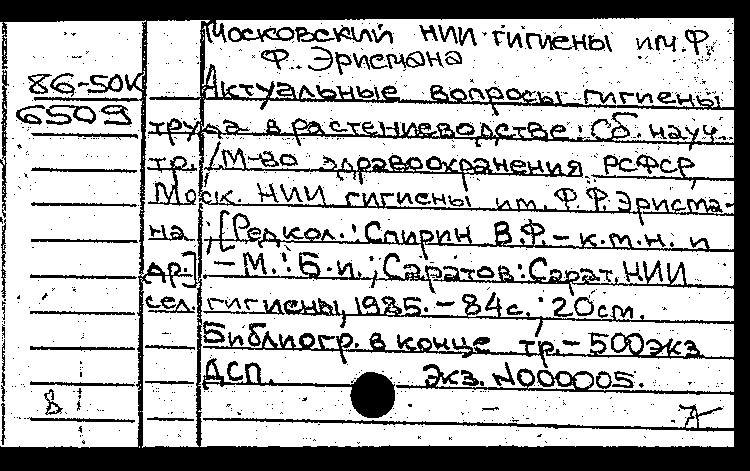 Московский НИИ гигиены им. Ф.
Ф. Эрисмана
86-50К
6509
Актуальные вопросы гигиены
труда в растениеводстве : Сб. науч.
тр. / М-во здравоохранения РСФСР,
Моск. НИИ гигиены им. Ф.Ф. Эрисма-
на ; [Редкол.: Спирин В.Ф. - к.м.н. и
др.]. - М. : Б.и. ; Саратов : Сарат. НИИ
сел. гигиены, 1985. - 84 с. ; 20 см.
Библиогр. в конце тр. - 500 экз
ДСП. Экз. N000005.